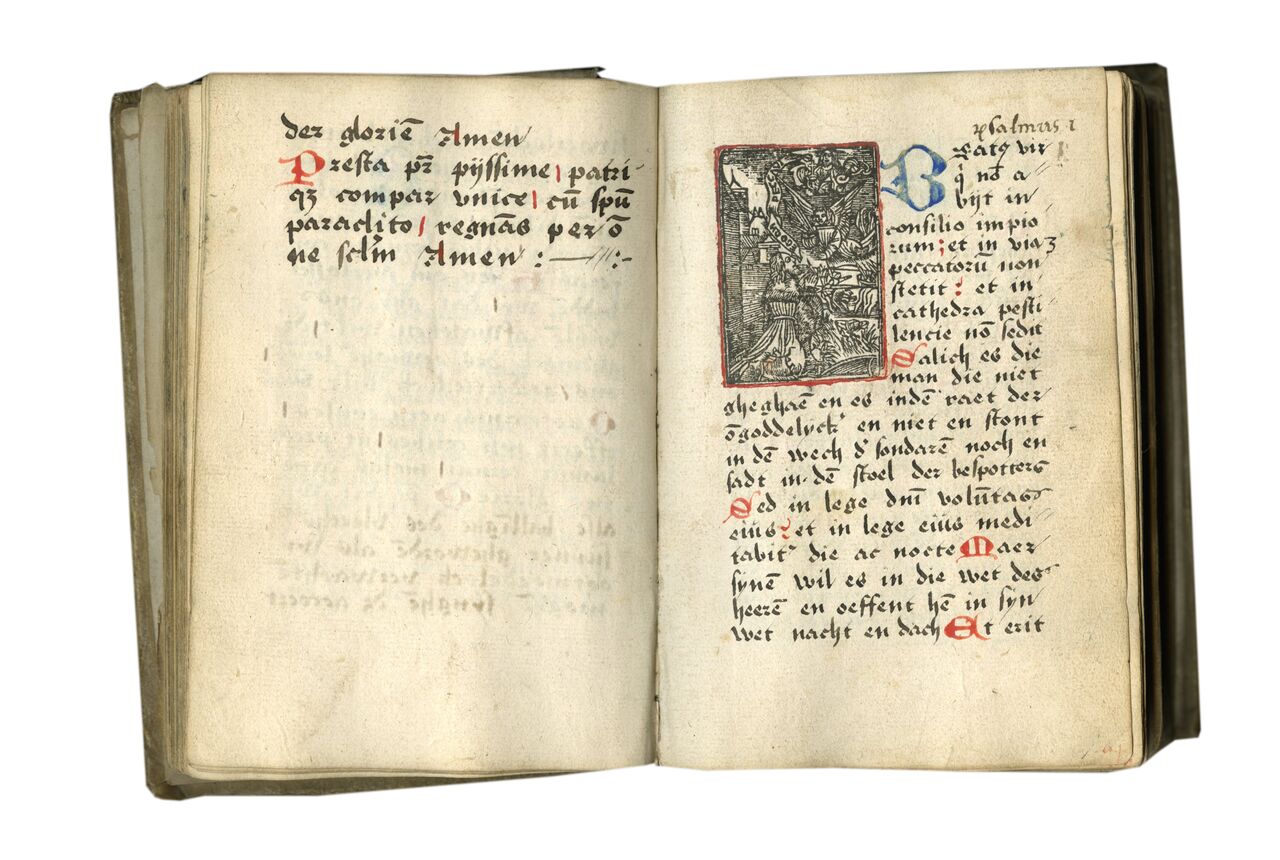 der gloriē Amen
Presta pr̄ pijssime patri
qȝ compar vnice cū spū
paraclito regnās per ō
ne sclm̄ Amen :
psalmus 1
Beatꝰ vir
q̇ nō a
bijt in
consilio impio
rum et in viaȝ
peccatorū non
stetit et in
cathedra pesti
lencie nō sedit
Salich es die
man die niet
gheghaē en es indē raet der
ōgoddelyckꝰ en niet en stont
in dē wech dꝰ sondarē noch en
sadt in dē stoel der bespotterꝭ
Sed in lege dnī volūtas
eiūs et in lege eiūs medi
tabitꝰ die ac nocte Maer
synē wil es in die wet des
heerē en oeffent hē in syn
wet nacht en dach Et erit